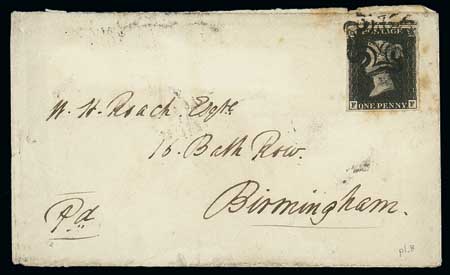 POSTAGE
ONE PENNY
W. H. Roach. Esqre
16. Bath Row.
Birmingham.
Pd
pl.8